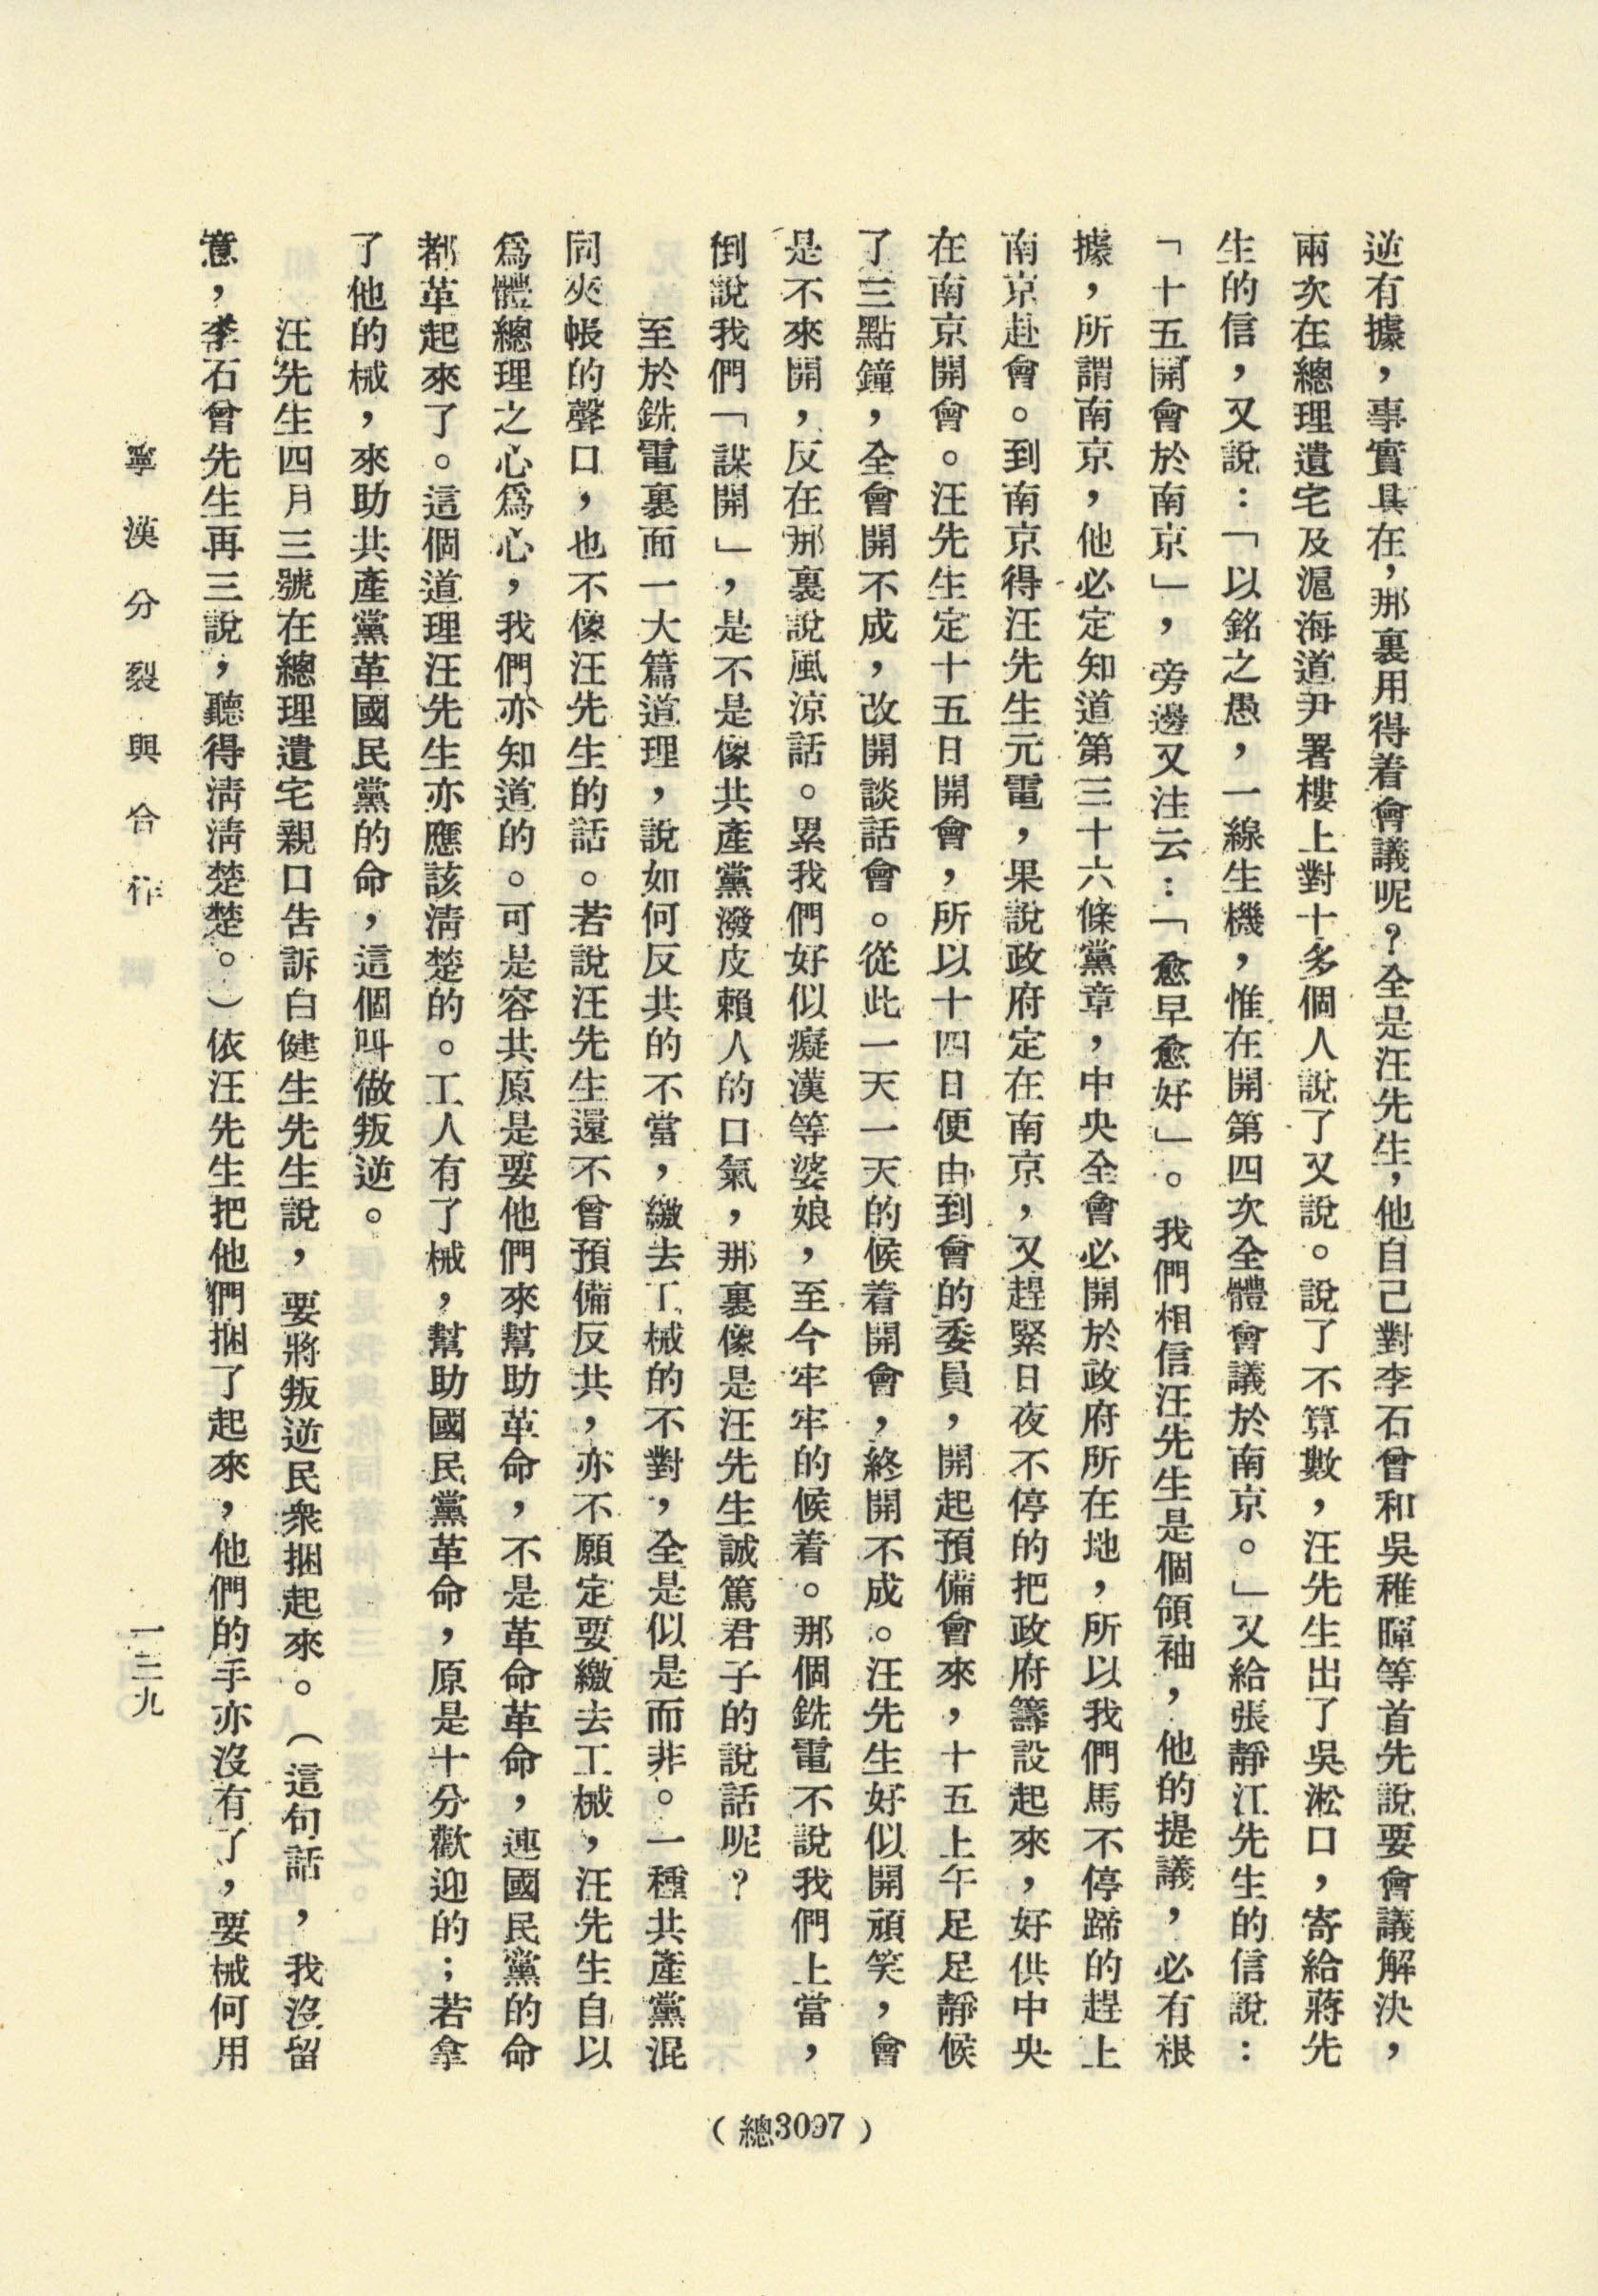 逆有據，事實具在，那裏用得着會議呢？全是汪先生，他自己對李石曾和吳稚暉等首先說要會議解決，
兩次在總理遺宅及滬海道尹署樓上對十多個人說了又說。說了不算數，汪先生出了吳淞口，寄給蔣先
生的信，又說：「以銘之愚，一線生機，惟在開第四次全體會議於南京。」又給張靜江先生的信說：
「十五開會於南京」，旁邊又注云：「愈早愈好」。我們相信汪先生是個領袖，他的提議，必有根
據，所謂南京，他必定知道第三十六條黨章，中央全會必開於政府所在地，所以我們馬不停蹄的趕上
南京赴會。到南京得汪先生元電，果說政府定在南京，又趕緊日夜不停的把政府籌設起來，好供中央
在南京開會。汪先生定十五日開會，所以十四日便由到會的委員，開起預備會來，十五上午足足靜候
了三點鐘，全會開不成，改開談話會。從此一天一天的候着開會，終開不成。汪先生好似開頑笑，會
是不來開，反在那裏說風涼話。累我們好似癡漢等婆娘，至今牢牢的候着。那個銑電不說我們上當，
倒說我們「謀開」，是不是像共產黨潑皮賴人的口氣，那裏像是汪先生誠篤君子的說話呢？
至於銑電裏面一大篇道理，說如何反共的不當，繳去工械的不對，全是似是而非。一種共產黨混
同夾帳的聲口，也不像汪先生的話。若說汪先生還不曾預備反共，亦不願定要繳去工械，汪先生自以
爲體總理之心爲心，我們亦知道的。可是容共原是要他們來幫助革命，不是革命革命，連國民黨的命
都革起來了。這個道理汪先生亦應該清楚的。工人有了械，幫助國民黨革命，原是十分歡迎的；若拿
了他的械，來助共產黨革國民黨的命，這個叫做叛逆。
汪先生四月三號在總理遺宅親口告訴白健生先生說，要將叛逆民衆捆起來。（這句話，我沒留
意，李石曾先生再三說，聽得清清楚楚。）依汪先生把他們捆了起來，他們的手亦沒有了，要械何用
寧漢分裂與合作
一三九
（總3097）